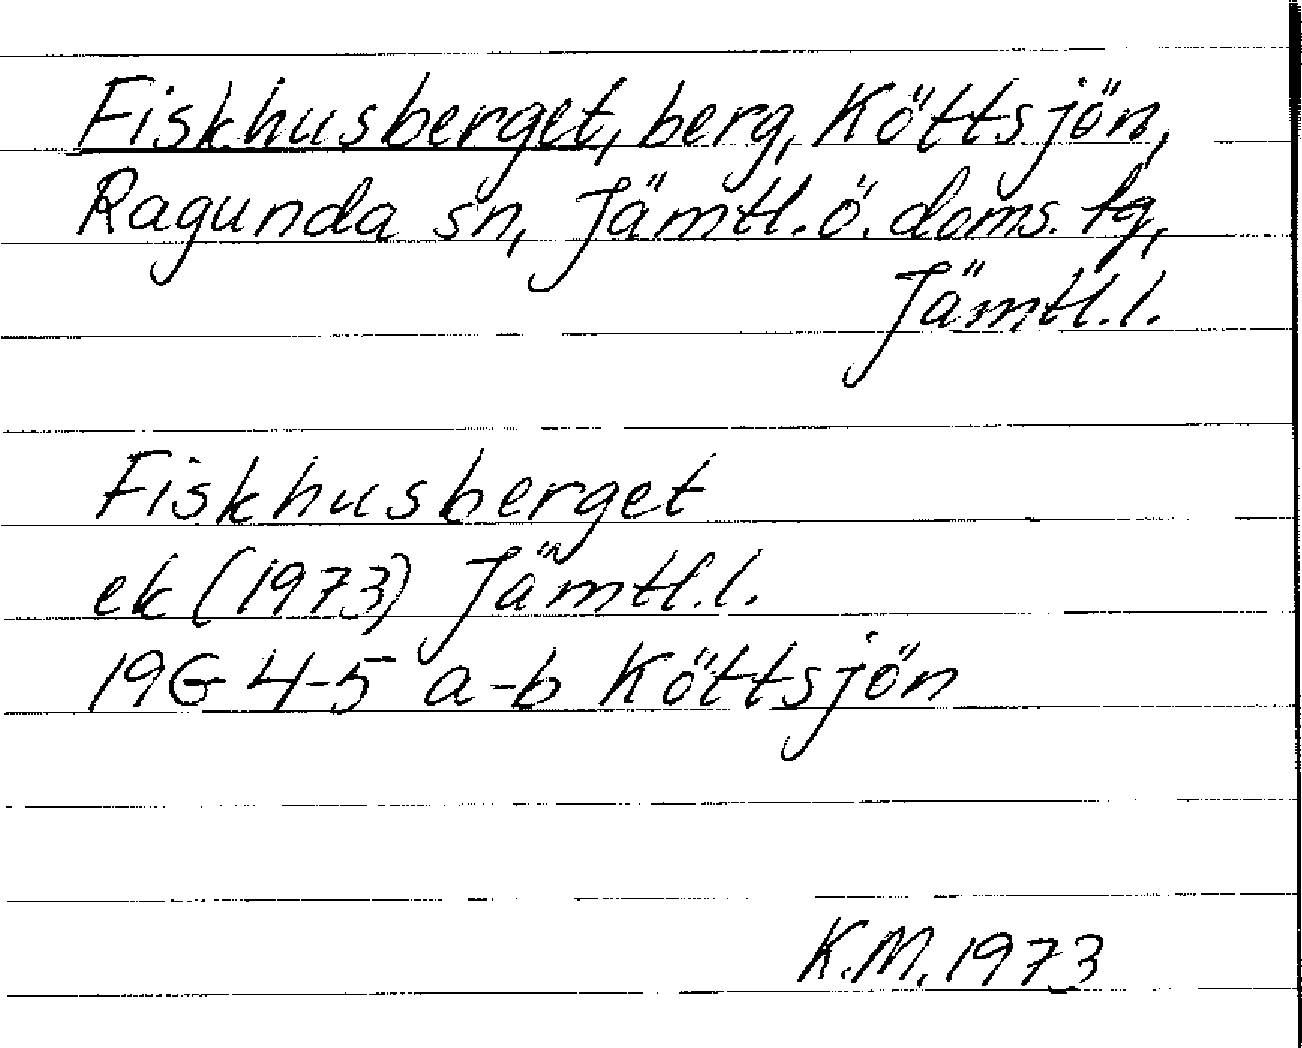 Fiskhusberget, berg, Köttsjön,
Ragunda sn, Jämtl. ö. doms. tg,
Jämtl. l.
Fiskhusberget
ek (1973) Jämtl. l.
19G 4-5 a-b Köttsjön
K.M. 1973